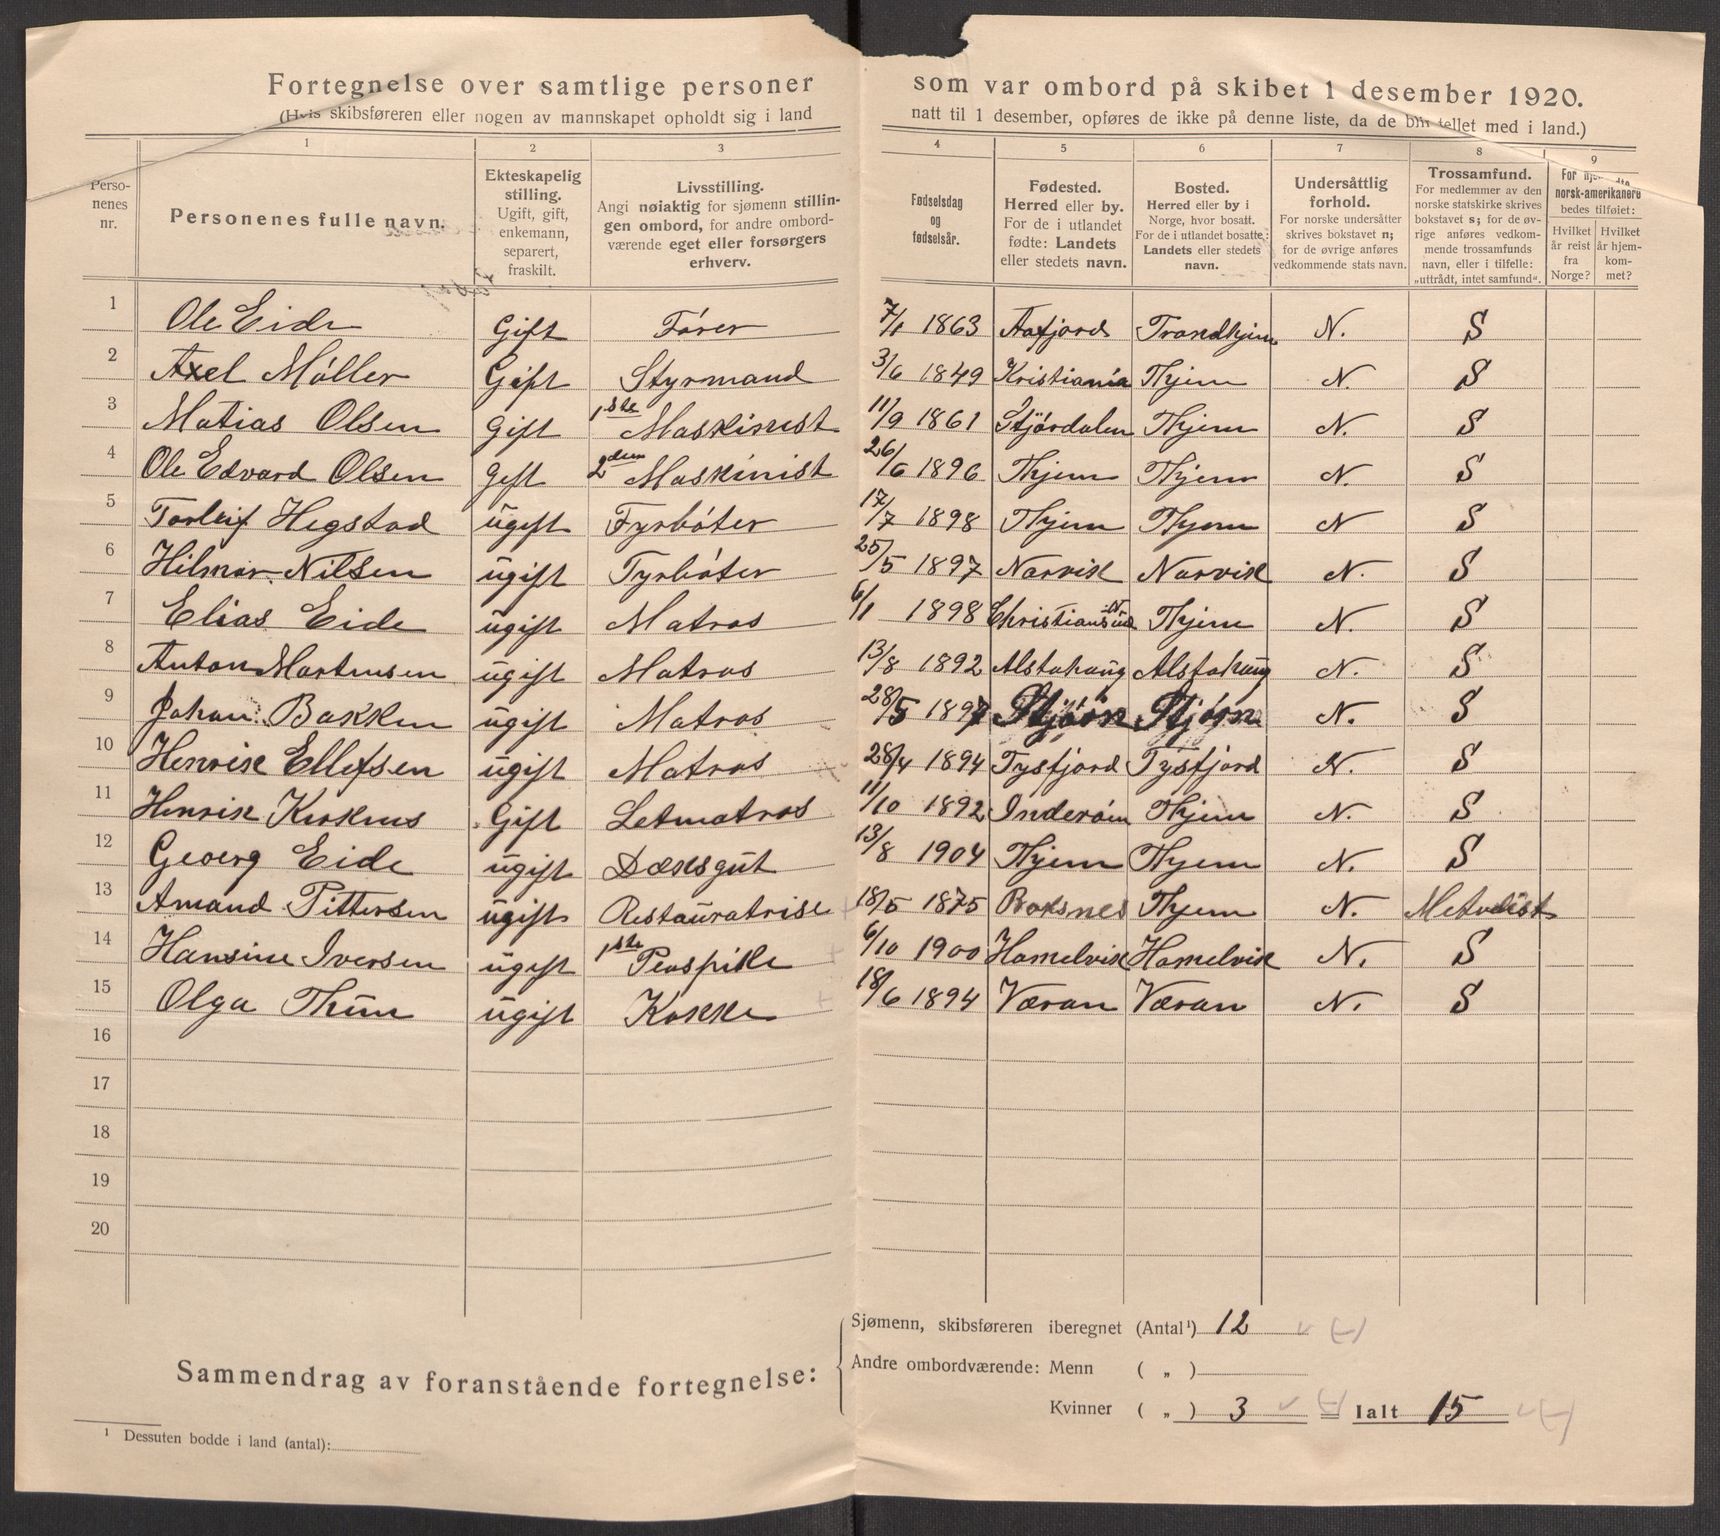 Fortegnelse over samtlige personer som var ombord på skibet 1 desember 1920.
(Hvis skibsføreren eller nogen av mannskapet opholdt sig i land natt til 1 desember, opføres de ikke på denne liste, da de blir tellet med i land.)
1 2 3 4 5 6 7 8 9
Personenes nr.
Personenes fulle navn.
Ekteskapelig stilling. Ugift, gift, enkemann, separert, fraskilt.
Livsstilling. Angi nøiaktig for sjømenn stillingen ombord, for andre ombordværende eget eller forsørgers erhverv.
Fødselsdag og fødselsår.
Fødested. Herred eller by. For de i utlandet fødte: Landets eller stedets navn.
Bosted. Herred eller by i Norge, hvor bosatt. For de i utlandet bosatte: Landets eller stedets navn.
Undersåttlig forhold. For norske undersåtter skrives bokstavet n; for de øvrige anføres vedkommende stats navn.
Trossamfund. For medlemmer av den norske statskirke skrives bokstavet s; for de øvrige anføres vedkommende trossamfunds navn, eller i tilfelle: „uttrådt, intet samfund“.
norsk-amerikanere bedes tilføiet:
Hvilket år reist fra Norge?
Hvilket år hjemkommet?
1 Ole Eide Gift Fører 7/1 1863 Aafjord Trondhjem N. S
2 Axel Møller Gift Styrmand 3/6 1849 Kristiania Thjem N. S
3 Matias Olsen Gift 1ste Maskinist 11/9 1861 Stjørdalen Thjem N. S
4 Ole Edvard Olsen Gift 2den Maskinist 26/6 1896 Thjem Thjem N. S
5 Torleif Hegstad ugift Fyrbøter 17/7 1898 Thjem Thjem N S
6 Hilmar Nilsen ugift Fyrbøter 25/5 1897 Narvik Narvik N. S
7 Elias Eide ugift Matros 6/1 1898 Christiansund N Thjem N. S
8 Anton Martinsen ugift Matros 13/8 1892 Alstahaug Alstahaug N. S
9 Johan Bakken ugift Matros 28/5 1897 Stjørn Stjørn N. S
10 Henrik Ellefsen ugift Matros 28/4 1894 Tysfjord Tysfjord N. S
11 Henrik Kirknes Gift Letmatros 11/10 1892 Inderøen Thjem N. S
12 Georg Eide ugift Dæksgut 13/8 1904 Thjem Thjem N. S
13 Amand Pettersen ugift Restauratrise 18/5 1875 Boksnes Thjem N. Metodist
14 Hansine Iversen ugift 1ste Penspike 6/10 1900 Homelvik Homelvik N. S
15 Olga Thun ugift Kokke 18/6 1894 Væran Væran N. S
16
17
18
19
20
Sammendrag av foranstående fortegnelse:
Sjømenn, skibsføreren iberegnet (Antal¹) 12
Andre ombordværende: Menn ( „ )
Kvinner ( „ ) 3 = Ialt 15
¹ Dessuten bodde i land (antal):